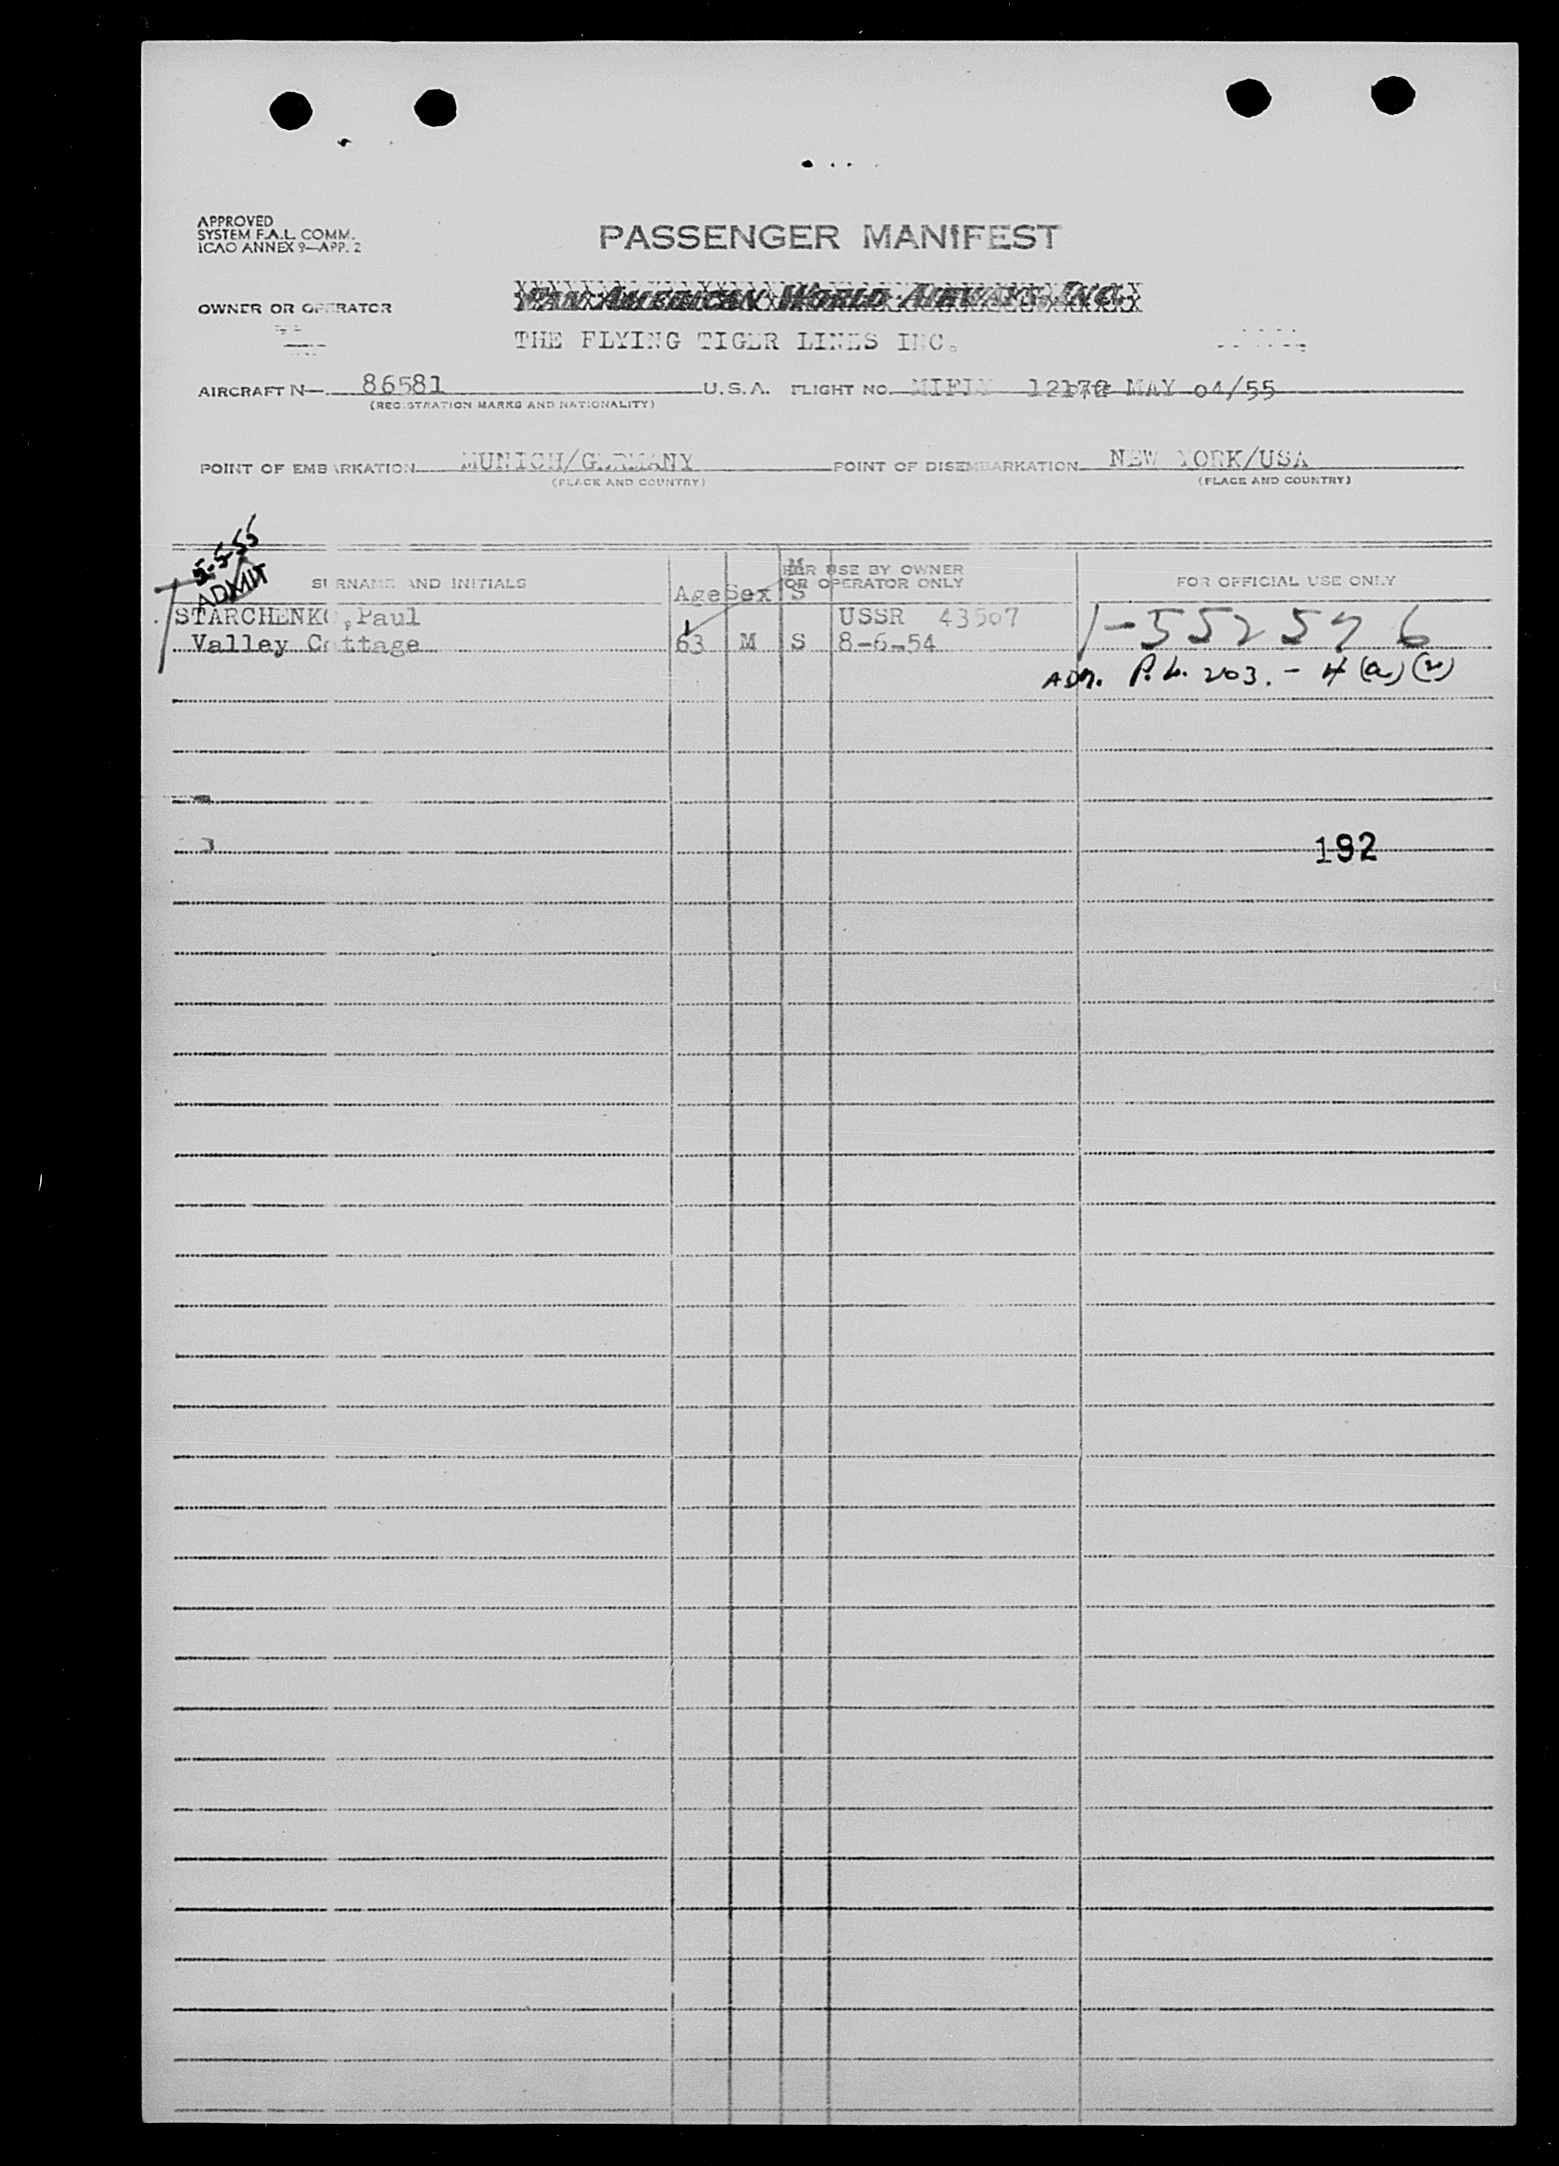 APPROVED
SYSTEM F.A.L. COMM.
ICAO ANNEX 9—APP. 2
PASSENGER MANIFEST
OWNER OR OPERATOR
PAN AMERICAN WORLD AIRWAYS, INC.
THE FLYING TIGER LINES INC.
AIRCRAFT N— 86581 U.S.A. FLIGHT NO. MAY 04/55
(REGISTRATION MARKS AND NATIONALITY)
POINT OF EMBARKATION MUNICH/GERMANY POINT OF DISEMBARKATION NEW YORK/USA
(PLACE AND COUNTRY) (PLACE AND COUNTRY)
5-5-55
ADMIT
SURNAME AND INITIALS Age Sex M S FOR USE BY OWNER OR OPERATOR ONLY FOR OFFICIAL USE ONLY
STARCHENKO, Paul USSR 43507 1-552576
Valley Cottage 63 M S 8-6-54
ADM. P.L. 203. - 4 (a) (2)
192